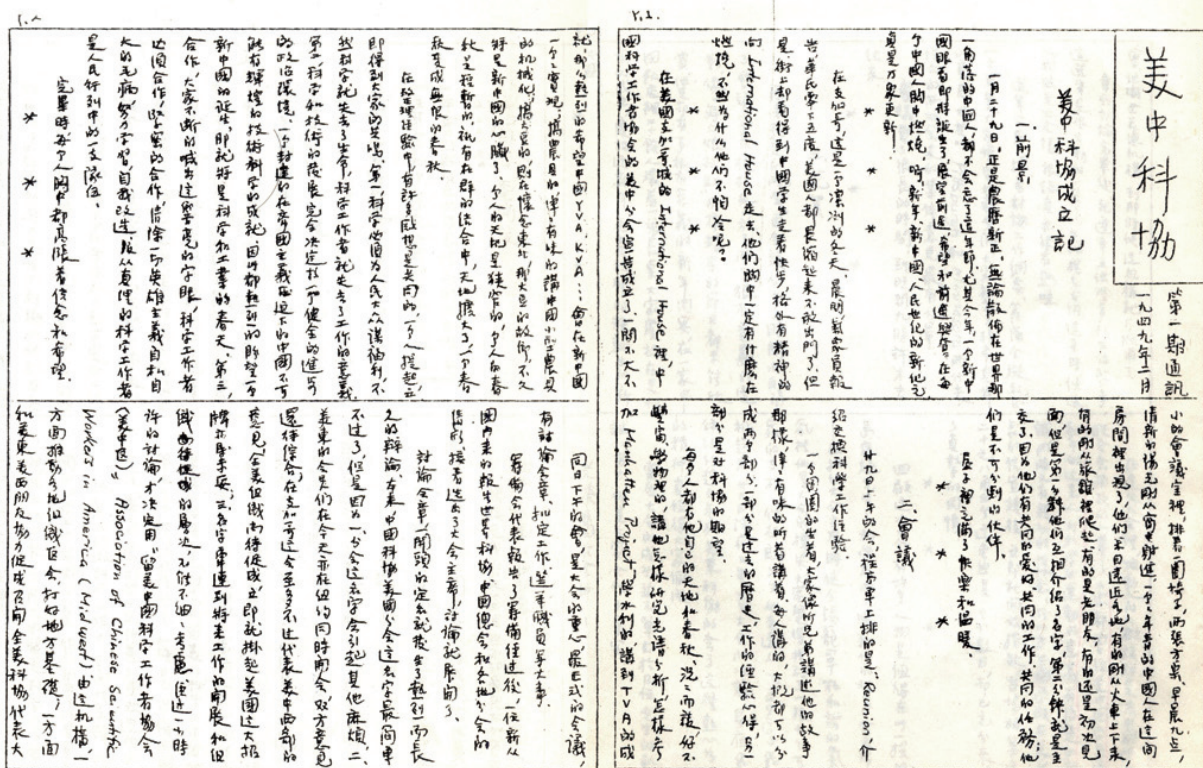 P.1.
美中科協
第一期通訊
一九四九年二月
美中科協成立記
一、前景
一月二十九日，正是農曆新正，無論散佈在世界那
一角落的中國人，都不會忘了這年節，尤其今年，一個新中
國眼看即將誕生了，展望前途，希望和前途
個中國人胸中燃燒，呵，新年，新中國，人民世紀的新紀元
真是万象更新
＊　＊　＊
在支加哥，這是一個凜冽的冬天，
當，華氏零下五度，美國人都畏縮起來不敢出門了，但
是，街上却看得到中國學生走着快步，格外有精神的
向 International House 走去，他們胸中一定有什麼在
燃燒，不然為什么他們不怕冷呢？
＊　＊　＊
在美國支加哥城的 International House 裡，中
國科學工作者協會的美中分會宣告成立了，一間不大不
小的會議室裡，排着一圈椅子，兩張方桌，早晨九点，
清新的陽光剛从窗
房間裡出現了，他們來自遠近各地，有的剛从火車上下來，
有的剛从旅館裡爬起，有的是老朋友，有的還是初次見
面，但是第一分鐘他們互相介紹了名字，第二分鐘就是
友了，因为他們有共同的爱好，共同的工作，共同的任務，他
們是不可分割的伙伴。
屋子裡充滿了快樂和溫暖。
＊　＊　＊
二、會議
廿九日上午的會，程序單上排的是 Reunion，介
紹交換科學工作經驗。
一個圍圈的坐着，大家像听兄弟講述他的故事
那樣，津津有味的听着講着每人講的，大概都可以分
成兩个部分，一部分是过去的歷史，工作的經驗心得，另一
部分是对科協的期望。
每个人都有他自己的天地和春秋，
學宇宙物理的，講他怎樣研究光谱分析，怎樣参
加 Manhattan Project，學水利的，講到TVA的成
P.2
就，那么熱烈的希望中國YVA, KVA……會在新中國
一个个實現，搞農具的津津有味的講中國小型農具
的机械化，搞大豆的，則在懷念東北，那大豆的故鄉，不久
將是新中國的心臟了，个人的天地是狹窄的，个人的春
秋是短暫的，祇有在群的結合中，天地擴大了，个人的春
秋变成無限的春秋。
在整理經驗中，有許多思想是共同的，一个人提起立
即得到大家的共鳴：第一，科學必須为人民大众謀福利，不
然科学就失去了生命，科学工作者就失去了工作的意義
第二，科學和技術的發展完全決定於一个健全的進步
的政治環境，一个封建的在帝國主義
新中國的誕生，即就將是科学和工業的春天。第三，
合作，大家不斷的喊出這響亮的字眼，科学工作者
必須合作，緊密的合作，清除一切英雄主義自私自
大的毛病，努力学習，自我改造，服从真理的科学工作者
是人民行列中的一支隊伍。
完畢時，每个人胸中都高漲着信念和希望。
＊　＊　＊
同日下午的會，是大會的重心，最正式的會議，
有討論會章，拟定工作，選举職員等大事。
籌備會代表報告了籌備經过後，一位新从
國内來的報告世界科協，中國總會和各地分會的
情形，接着選出了大會主席，討論就展開了。
討論會章，一開頭的定名就發生了熱烈而長
久的辯論，本来中國科協美國分會這名字最簡單
不过了，但是因为一、分會這名字會引起其他麻煩，二、
美東的會員們在今天亦在纽约同時開會，双方意見
還待綜合，在支加哥這个會至多不过代表美中西部的
意見，全美组織尚待促成，立即就掛起美國這大招
牌於勢不妥，三、名字牽連到將来工作的開展和组
織
許的討論，才決定用“留美中國科学工作者協會
（美中区）” Association of Chinese Scientific
Workers in America (Midwest)，由這机構，一
方面推動各地组織区會，打好地方基礎，一方面
和美東美西朋友協力促成召開全美科協代表大